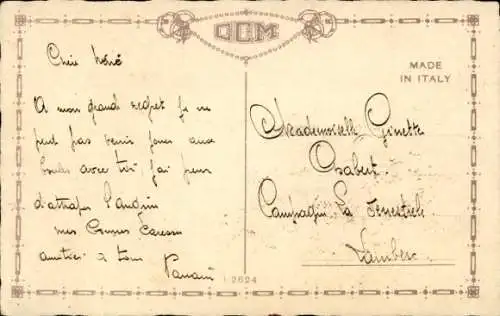 QCM
MADE
IN ITALY
Chère Néné
A mon grand regret je ne
peut pas venir jouer aux
boules avec toi j'ai peur
d'attraper l'angine
mes bonnes caresses
amitiés à tous
Mademoiselle Ginette
Campagne La
Lambesc
12624